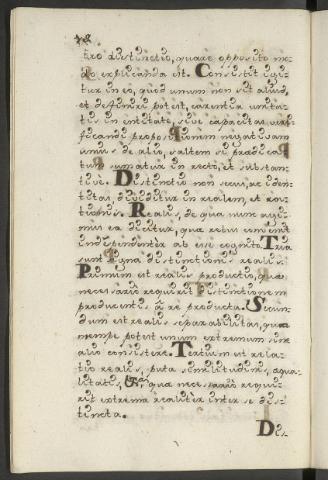 78
tio distinctio, quare opposito mo-
do explicanda est. Consistit igi-
tur in eo, quod unum non sit aliud,
et definiri potest, carentia unita-
tis in entitate, sive capacitas veri-
ficandi propositionem negativam
unius de alio, saltem si prædica-
tum sumatur in recto, et substan-
tive. Distinctio non secus, ac iden-
titas, dividitur in realem, et ra-
tionis. Realis, de qua nunc agi-
mus ea dicitur, quæ rebus convenit
independenter ab esse cognito. Tria
sunt signa distinctionis realis:
Primum est realis productio, quæ
necessario requirit distinctionem
producentis à re producta. Secun-
dum est realis separabilitas, qua
nempe potest unum extremum sine
alio consistere. Tertium est rela-
tio realis, puta similitudinis, æqua-
litatis, quæ necessario requi-
rit extrema realiter inter se dis-
tincta.
Dis-